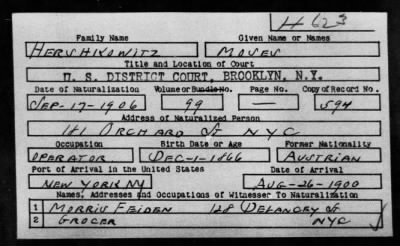 H 623
Family Name Given Name or Names
HERSHKOWITZ MOSES
Title and Location of Court
U. S. DISTRICT COURT, BROOKLYN, N.Y.
Date of Naturalization Volume or Bundle No. Page No. Copy of Record No.
SEP-17-1906 99 — 594
Address of Naturalized Person
181 ORCHARD St NYC
Occupation Birth Date or Age Former Nationality
OPERATOR DEC-1-1866 AUSTRIAN
Port of Arrival in the United States Date of Arrival
NEW YORK NY AUG-26-1900
Names, Addresses and Occupations of Witnesses To Naturalization
1 MORRIS FEIDEN 128 DELANCEY St
2 GROCER NYC